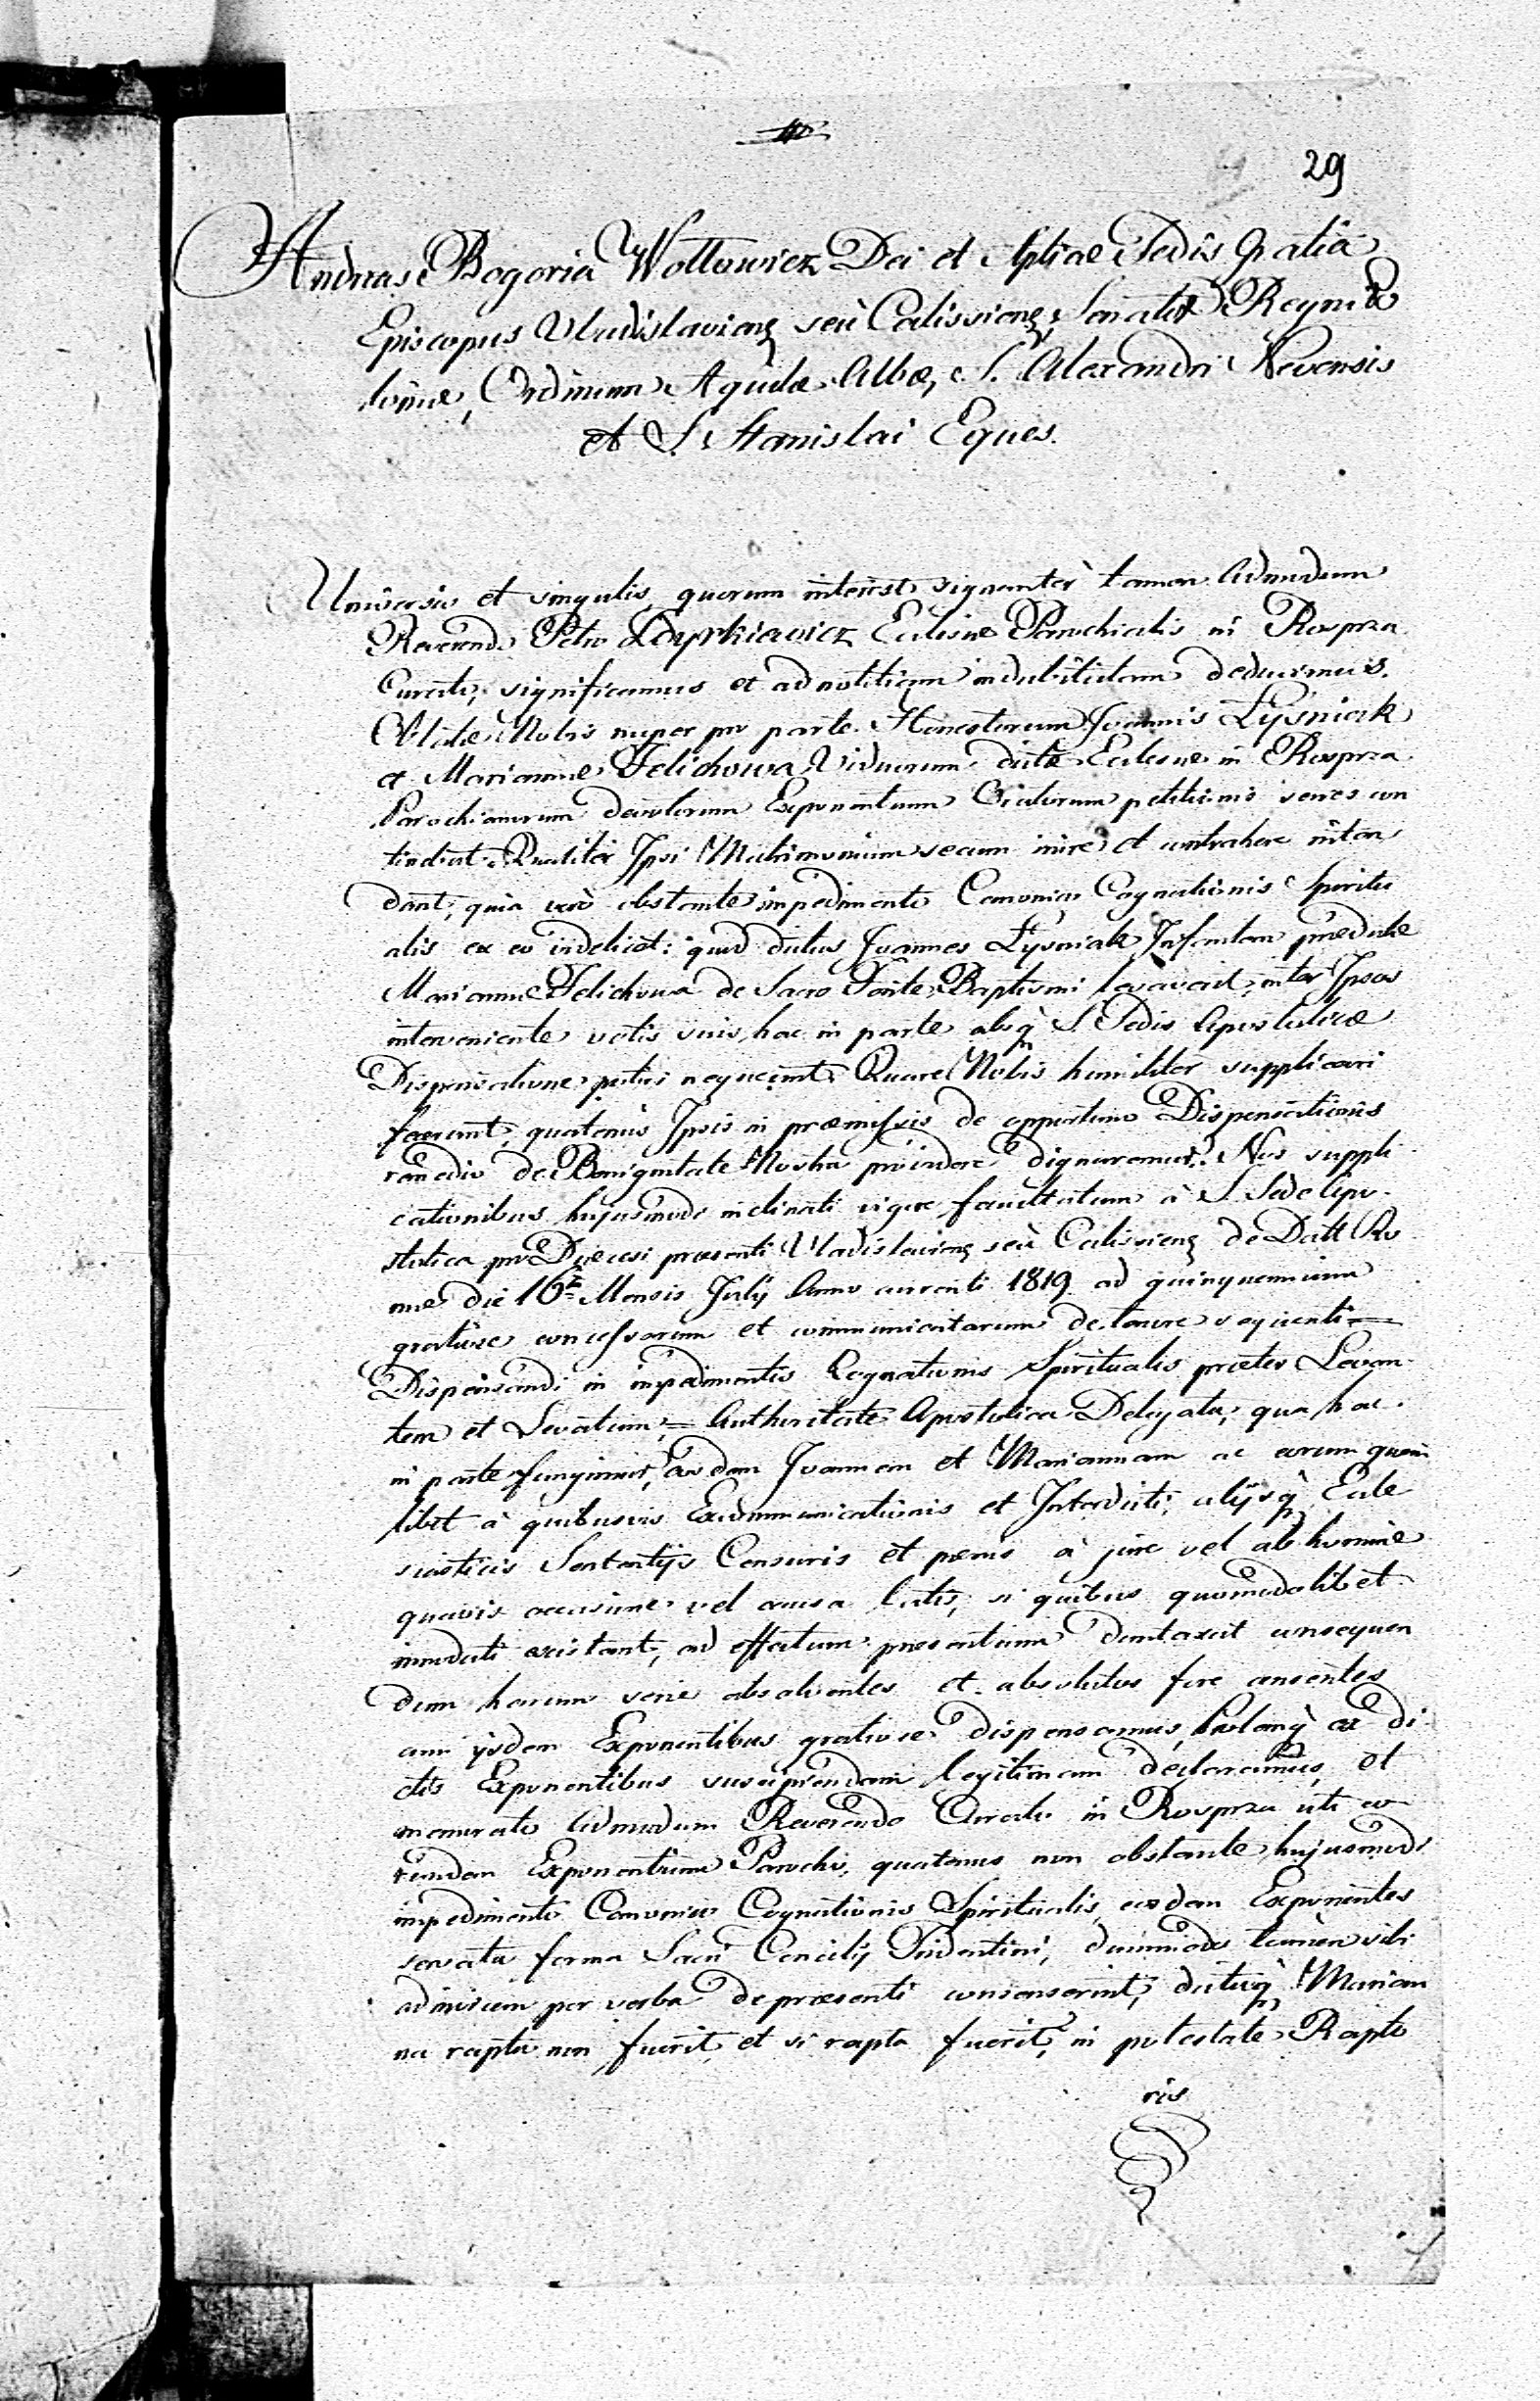 29
Andreas Bogoria Wołłowicz Dei et Aplicae Sedis Gratia
Episcopus Vladislavien seù Calissiens, Senator Regni Po
loniae, Ordinum Aquilae Albae, S. Alexandri Nevensis
et S. Stanislai Eques.
Universis et singulis, quorum interest signantèr tamen Admodum
Reverendo Petro Ecclesiae Parochialis in Rospza
Curato, significamus et ad notitiam indubitatam deducimus.
Oblatae Nobis nuper pro parte Honestorum Joannis Łyśniak
et Mariannae Felichowa Viduorum dictae Ecclesiae in Rospza
Parochianorum devotorum Exponentium Oratorum petitionis series con
tinebat. Qualitèr Ipsi Matrimonium secum inire et contrahere inten
dant, quia verò obstante impedimento Canonico Cognationis Spiritu
alis ex eo indelicet: quod dictus Joannes Łyśniak Infantem praedictae
Mariannae Felichowa de Sacro Fonte Baptismi levaverit, inter Ipsos
interveniente votis suis hac in parte absq S. Sedis Apostolicae
Dispensatione potiri nequeunt. Quare Nobis humilitèr supplicari
fecerunt, quatenùs Ipsis in praemissis de opportuno Dispensationis
remedio de Benignitate Nostra providere dignaremur. Nos suppli
cationibus hujusmodi inclinati vigore facultatum à S. Sede Apo
stolica pro Dioecesi praesenti Vladislavien seù Calissien de Datt Ro
mae die 16ta Mensis Julij Anno currenti 1819 ad quinquennium
gratiose concessarum et communicatarum de tenore sequenti =
Dispensandi in impedimentis Cognationis Spiritualis praeter Levan
tem et Levatum, = Authoritate Apostolica Delegata, qua hac
in parte fungimur, eosdem Joannem et Mariannam ac eorum quem
libet à quibusvis Excommunicationis et Interdicti, alijsq Eccle
siasticis Sententijs Censuris et poenis à jure vel ab homine
quavis occasione vel causa latis, si quibus quomodolibet
innodati existant, ad effectum praesentium duntaxat consequen
dum harum serie absolventes et absolutos fore censentes
cum ijsdem Exponentibus gratiose dispensamus, Prolemq ex di
ctis Exponentibus suscipiendam legitimam declaramus, et
memorato Admodum Reverendo Curato in Rospza uti eo
rundem Exponentium Parocho, quatenus non obstante hujusmodi
impedimento Canonico Cognationis Spiritualis, eosdem Exponentes
servata forma Sacri Concilij Tridentini, dummodo tamen sibi
adinvicem per verba de praesenti consenserint, dictaq Marian
na rapta non fuerit, et si rapta fuerit, in potestate Rapto
ris